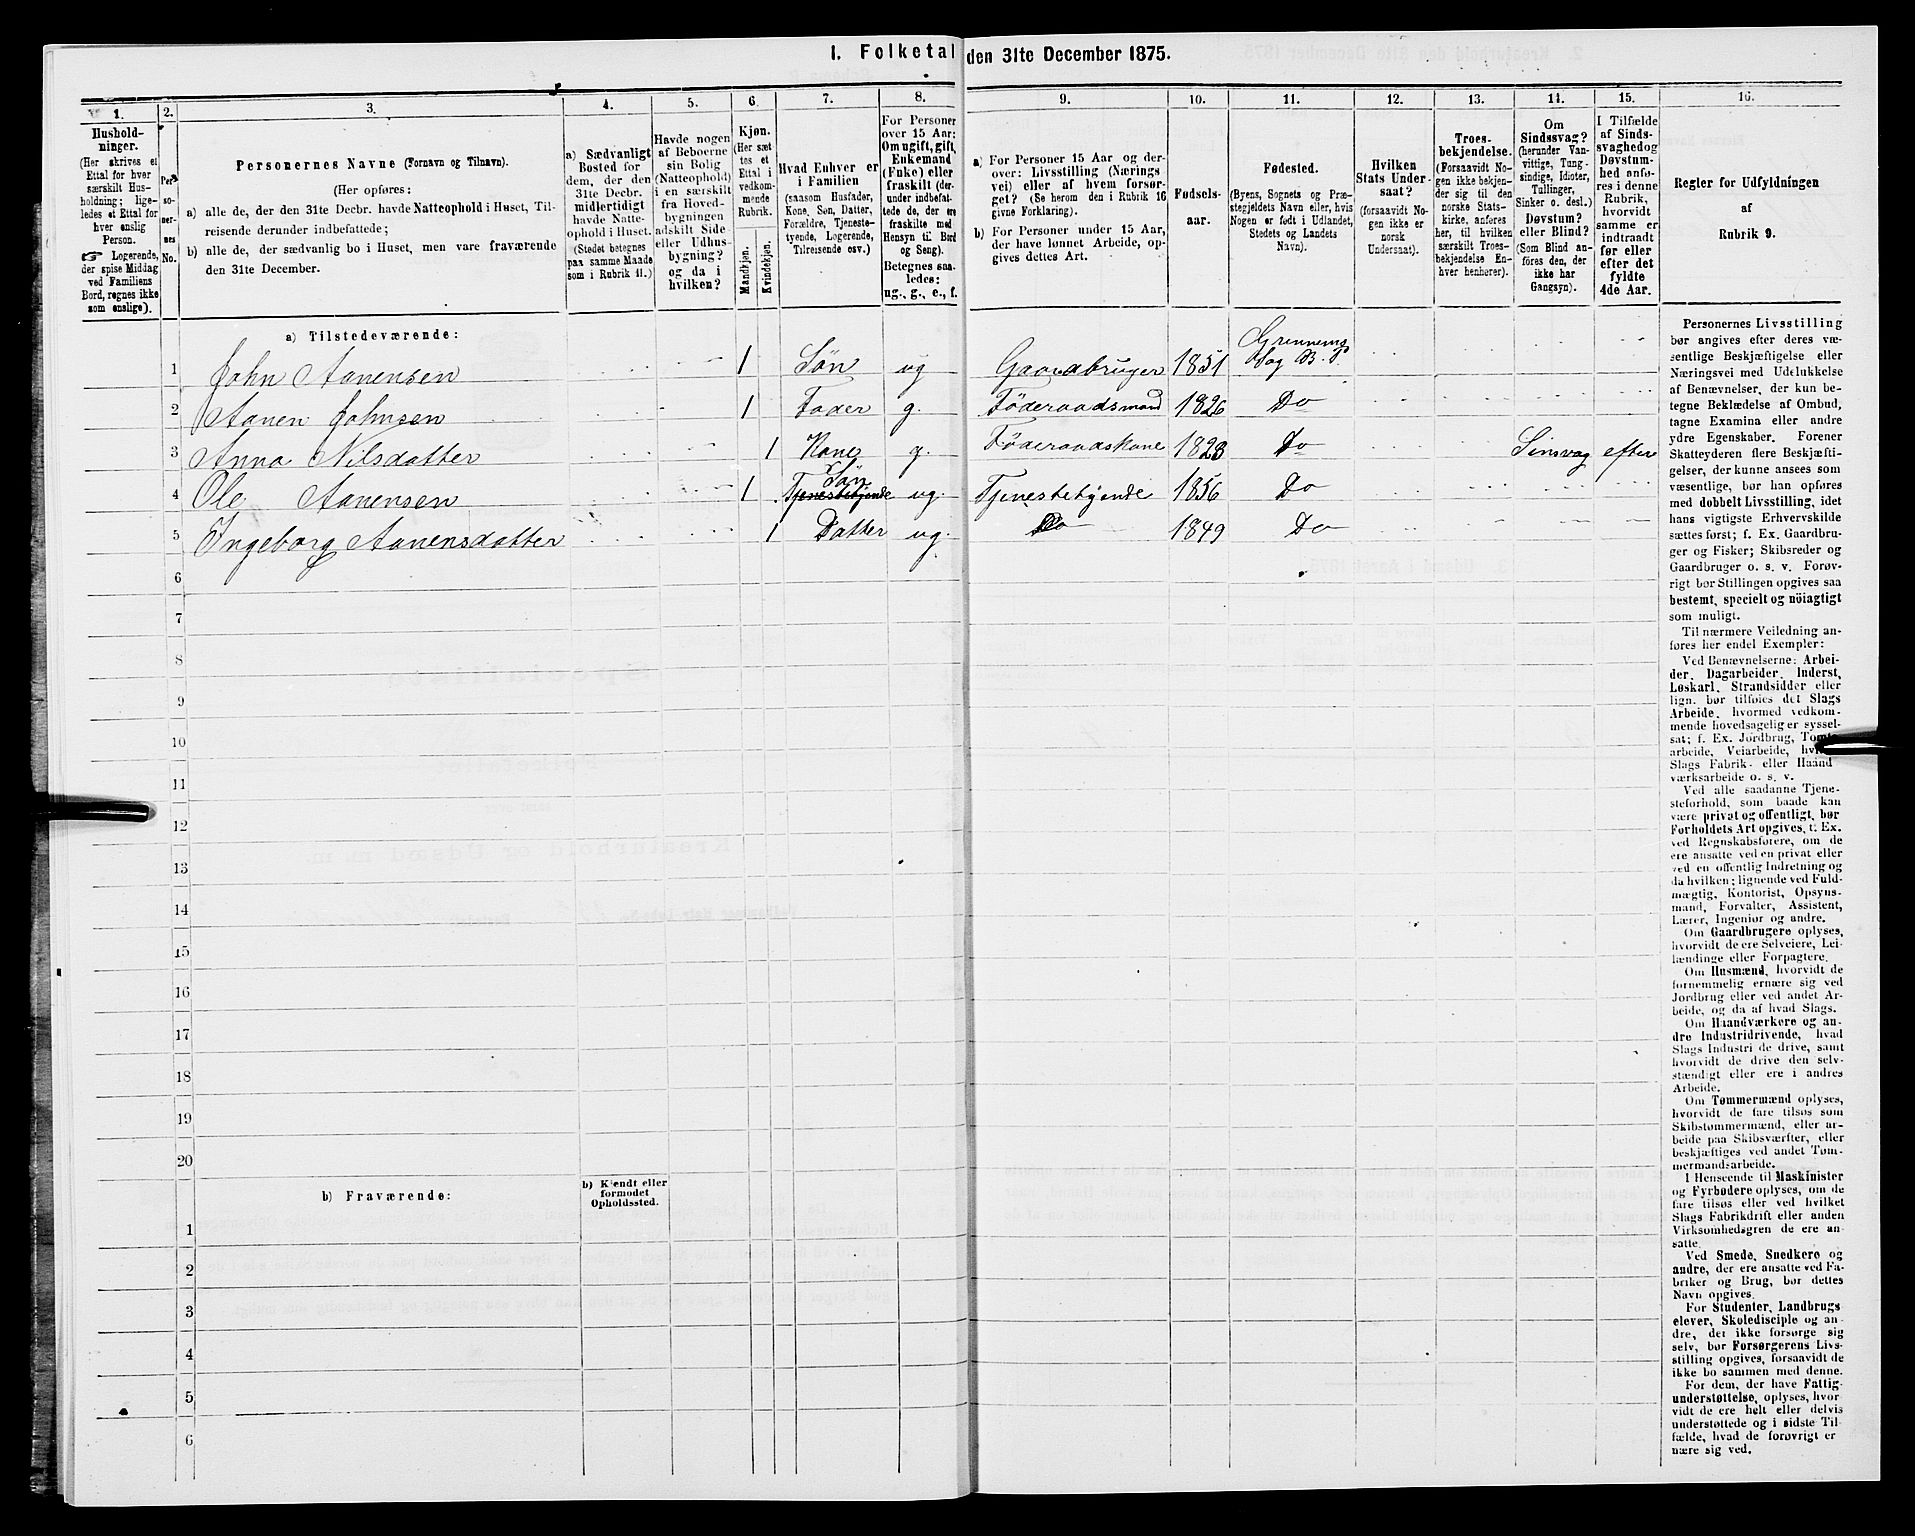 I. Folketal den 31te December 1875.
1. 2. 3. 4. 5. 6. 7. 8. 9. 10. 11. 12. 13. 14. 15. 16.
Hushold-
ninger.
(Her skrives et
Ettal for hver
særskilt Hus-
holdning; lige-
ledes et Ettal for
hver enslig
Person.
☞ Logerende,
der spise Middag
ved Familiens
Bord, regnes ikke
som enslige).
Per-
so-
ner-
nes
No.
Personernes Navne (Fornavn og Tilnavn).
(Her opføres:
a) alle de, der den 31te Decbr. havde Natteophold i Huset, Til-
reisende derunder indbefattede;
b) alle de, der sædvanlig bo i Huset, men vare fraværende
den 31te December.
a) Sædvanligt
Bosted for
dem, der den
31te Decbr.
midlertidigt
havde Natte-
ophold i Huset.
(Stedet betegnes
paa samme Maade
som i Rubrik 11.)
Havde nogen
af Beboerne
sin Bolig
(Natteophold)
i en særskilt
fra Hoved-
bygningen
adskilt Side-
eller Udhus-
bygning?
og da i
hvilken?
Kjøn.
(Her sæt-
tes et
Ettal i
vedkom-
mende
Rubrik.
Mandkjøn.
Kvindekjøn.
Hvad Enhver er
i Familien
(saasom Husfader,
Kone, Søn, Datter,
Forældre, Tjeneste-
tyende, Logerende,
Tilreisende osv.)
For Personer
over 15 Aar:
Om ugift, gift,
Enkemand
(Enke) eller
fraskilt (der-
under indbefat-
tede de, der ere
fraskilte med
Hensyn til Bord
og Seng).
Betegnes saa-
ledes:
ug., g., e., f.
a) For Personer 15 Aar og der-
over: Livsstilling (Nærings-
vei) eller af hvem forsør-
get? (Se herom den i Rubrik 16
givne Forklaring).
b) For Personer under 15 Aar,
der have lønnet Arbeide, op-
gives dettes Art.
Fødsels-
aar.
Fødested.
(Byens, Sognets og Præ-
stegjeldets Navn eller, hvis
Nogen er født i Udlandet,
Stedets og Landets
Navn).
Hvilken
Stats Under-
saat?
(forsaavidt No-
gen ikke er
norsk
Undersaat).
Troes-
bekjendelse.
(Forsaavidt No-
gen ikke bekjen-
der sig til den
norske Stats-
kirke, anføres
her, til hvilken
særskilt Troes-
bekjendelse En-
hver henhører).
Om
Sindssvag?
(herunder Van-
vittige, Tung-
sindige, Idioter,
Tullinger,
Sinker o. desl.)
Døvstum?
eller Blind?
(Som Blind an-
føres den, der
ikke har
Gangsyn).
I Tilfælde
af Sinds-
svaghed og
Døvstum-
hed anfø-
res i denne
Rubrik,
hvorvidt
samme er
indtraadt
før eller
efter det
fyldte
4de Aar.
Regler for Udfyldningen
af
Rubrik 9.
a) Tilstedeværende:
1 John Aanensen 1 Søn ug Gaardbruger 1851 Do
2 Aanen Johnsen 1 Fader g. Föderaadsmand 1826 Do
3 Anna Nilsdatter 1 Kone g. Föderaadskone 1823 Do Sinsvag efter
4 Ole Aanensen 1 Tjenestetyende Søn ug. Tjenestetyende 1856 Do
5 Ingeborg Aanensdatter 1 Datter ug. Do 1849 Do
6
7
8
9
10
11
12
13
14
15
16
17
18
19
20
b) Fraværende:
b) Kjendt eller
formodet
Opholdssted.
1
2
3
4
5
6
Personernes Livsstilling
bør angives efter deres væ-
sentlige Beskjæftigelse eller
Næringsvei med Udelukkelse
af Benævnelser, der kun be-
tegne Beklædelse af Ombud,
tagne Examina eller andre
ydre Egenskaber. Forener
Skatteyderen flere Beskjæfti-
gelser, der kunne ansees som
væsentlige, bør han opføres
med dobbelt Livsstilling, idet
hans vigtigste Erhvervskilde
sættes først; f. Ex. Gaardbru-
ger og Fisker; Skibsreder og
Gaardbruger o. s. v. Forøv-
rigt bør Stillingen opgives saa
bestemt, specielt og nöiagtigt
som muligt.
Til nærmere Veiledning an-
føres her endel Exempler:
Ved Benævnelserne: Arbei-
der, Dagarbeider, Inderst,
Løskarl, Strandsidder eller
lign. bør tilføies det Slags
Arbeide, hvormed vedkom-
mende hovedsagelig er syssel-
sat; f. Ex. Jordbrug, Tomte-
arbeide, Veiarbeide, hvilket
Slags Fabrik- eller Haand-
værksarbeide o. s. v.
Ved alle saadanne Tjene-
steforhold, som baade kan
være privat og offentligt, bør
Forholdets Art opgives, t. Ex.
ved Regnskabsførere, om de
ere ansatte ved en privat eller
ved en offentlig Indretning og
da hvilken; lignende ved Fuld-
mægtig, Kontorist, Opsyns-
mand, Forvalter, Assistent,
Lærer, Ingeniør og andre.
Om Gaardbrugere oplyses,
hvorvidt de ere Selveiere, Lei-
lændinge eller Forpagtere.
Om Husmænd, hvorvidt de
fornemmelig ernære sig ved
Jordbrug eller ved andet Ar-
beide, og da af hvad Slags.
Om Haandværkere og an-
dre Industridrivende, hvad
Slags Industri de drive, samt
hvorvidt de drive den selv-
stændigt eller ere i andres
Arbeide.
Om Tømmermænd oplyses,
hvorvidt de fare tilsøs som
Skibstømmermænd, eller ar-
beide paa Skibsværfter, eller
beskjæftiges ved andet Tøm-
mermandsarbeide.
I Henseende til Maskinister
og Fyrbødere oplyses, om de
fare tilsøs eller ved hvilket
Slags Fabrikdrift eller anden
Virksomhedsgren de ere an-
satte.
Ved Smede, Snedkere og
andre, der ere ansatte ved Fa-
briker og Brug, bør dettes
Navn opgives.
For Studenter, Landbrugs-
elever, Skoledisciple og an-
dre, der ikke forsørge sig
selv, bør Forsørgerens Livs-
stilling opgives, forsaavidt de
ikke bo sammen med denne.
For dem, der have Fattig-
understøttelse, oplyses, hvor-
vidt de ere helt eller delvis
understøttede og i sidste Til-
fælde, hvad de forøvrigt er-
nære sig ved.